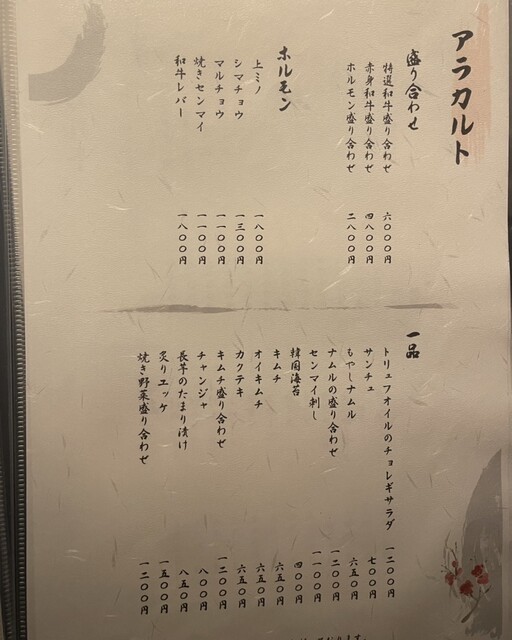 アラカルト
盛り合わせ
特選和牛盛り合わせ 六〇〇〇円
赤身和牛盛り合わせ 四八〇〇円
ホルモン盛り合わせ 二八〇〇円
ホルモン
上ミノ 一八〇〇円
シマチョウ 一三〇〇円
マルチョウ 一一〇〇円
焼きセンマイ 一一〇〇円
和牛レバー 一八〇〇円
一品
トリュフオイルのチョレギサラダ 一二〇〇円
サンチュ 七〇〇円
もやしナムル 六五〇円
ナムルの盛り合わせ 一二〇〇円
センマイ刺し 一一〇〇円
韓国海苔 四〇〇円
キムチ 六五〇円
オイキムチ 六五〇円
カクテキ 六五〇円
キムチ盛り合わせ 一二〇〇円
チャンジャ 八〇〇円
長芋のたまり漬け 八五〇円
炙りエッケ 一五〇〇円
焼き野菜盛り合わせ 一二〇〇円